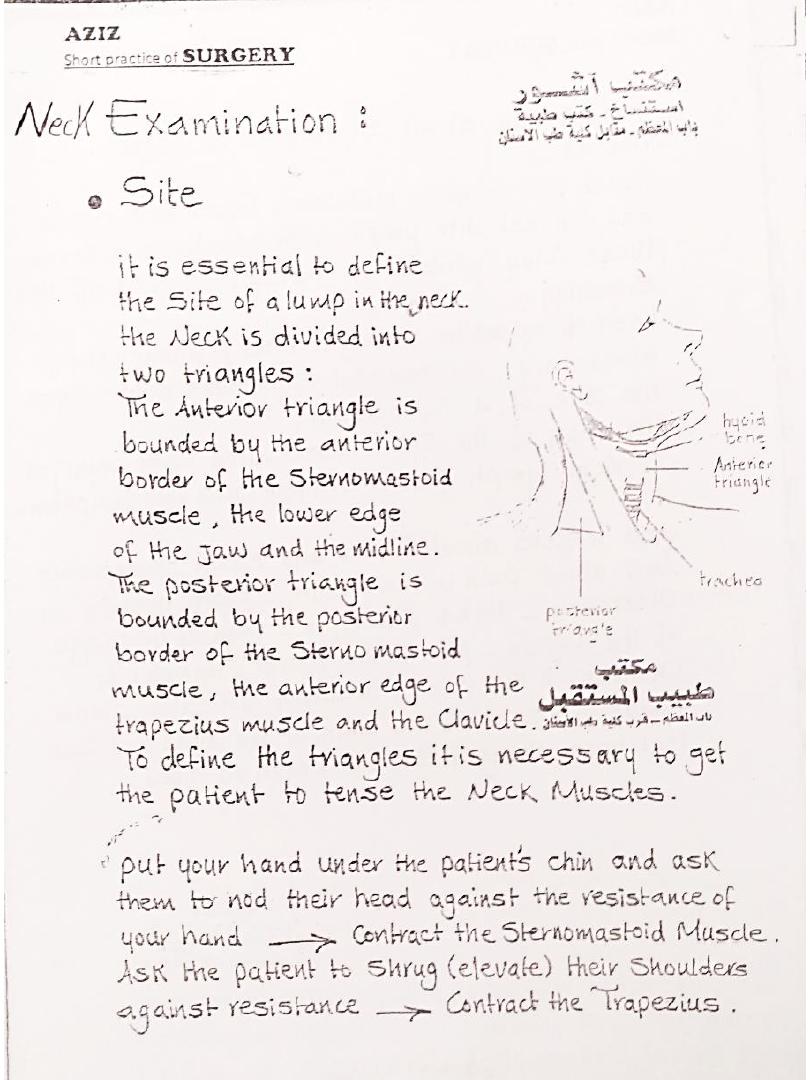 AZIZ
Short practice of SURGERY
مكتب آشور
استنساخ - كتب طبية
باب المعظم - مقابل كلية طب الاسنان
Neck Examination :
• Site
it is essential to define
the Site of a lump in the neck.
the Neck is divided into
two triangles :
The Anterior triangle is
bounded by the anterior
border of the Sternomastoid
muscle , the lower edge
of the jaw and the midline.
The posterior triangle is
bounded by the posterior
border of the Sterno mastoid
muscle, the anterior edge of the
trapezius muscle and the Clavicle.
To define the triangles it is necessary to get
the patient to tense the Neck Muscles.
hyoid
bone
Anterior
triangle
trachea
posterior
triangle
مكتب
طبيب المستقبل
باب المعظم - قرب كلية طب الاسنان
put your hand under the patient's chin and ask
them to nod their head against the resistance of
your hand → Contract the Sternomastoid Muscle.
Ask the patient to Shrug (elevate) their Shoulders
against resistance → Contract the Trapezius.